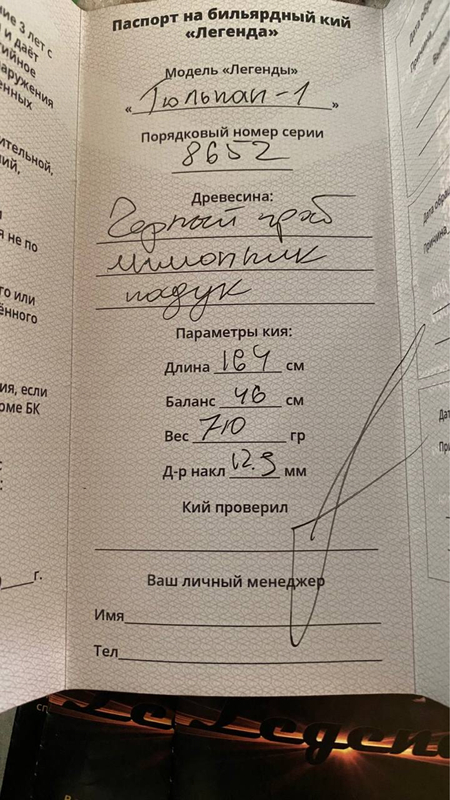 ие 3 лет с
и и даёт
тийное
наружения
енных
ительной,
ий,
я не по
го или
ённого
ия, если
оме БК
г.
Паспорт на бильярдный кий
«Легенда»
Модель «Легенды»
« Тюльпан-1 »
Порядковый номер серии
8652
Древесина:
Черный граб
лимонник
падук
Параметры кия:
Длина 164 см
Баланс 46 см
Вес 710 гр
Д-р накл 12.9 мм
Кий проверил
Ваш личный менеджер
Имя
Тел
Дата обра
Причина
Дат
При
Legen